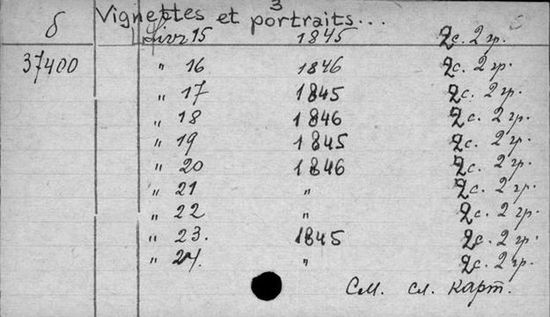 3
б Vignettes et portraits...
Livr 15 1845 2с. 2 гр.
37400 " 16 1846 2с. 2 гр.
" 17 1845 2с. 2 гр.
" 18 1846 2с. 2 гр.
" 19 1845 2с. 2 гр.
" 20 1846 2с. 2 гр.
" 21 " 2с. 2 гр.
" 22 " 2с. 2 гр.
" 23. 1845 2с. 2 гр.
" 24. " 2с. 2 гр.
См. сл. карт.